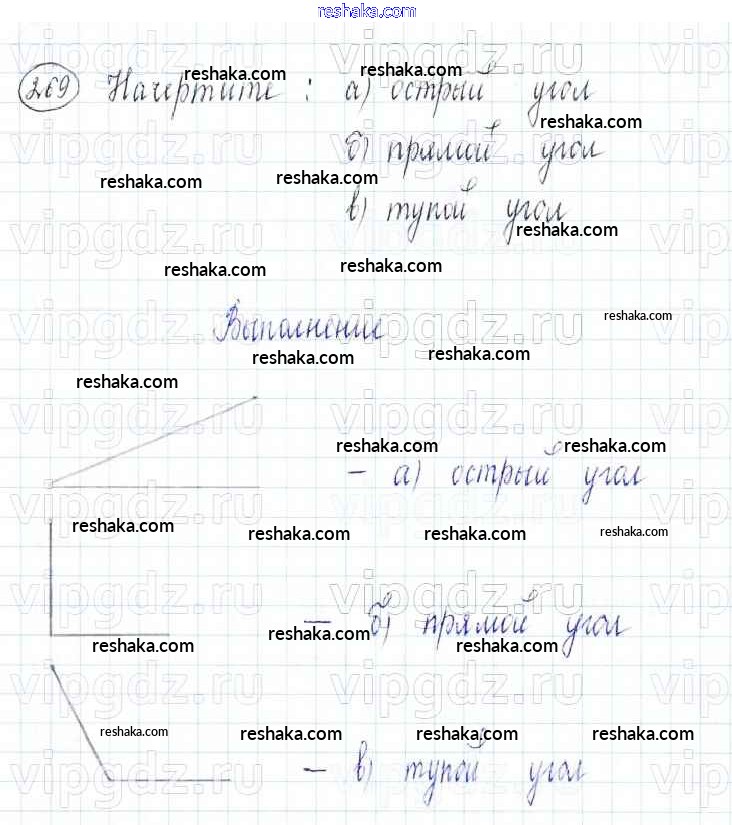 reshaka.com
269 Начертите : а) острый угол
б) прямой угол
в) тупой угол
Выполнение
- а) острый угол
- б) прямой угол
- в) тупой угол
vipgdz.ru